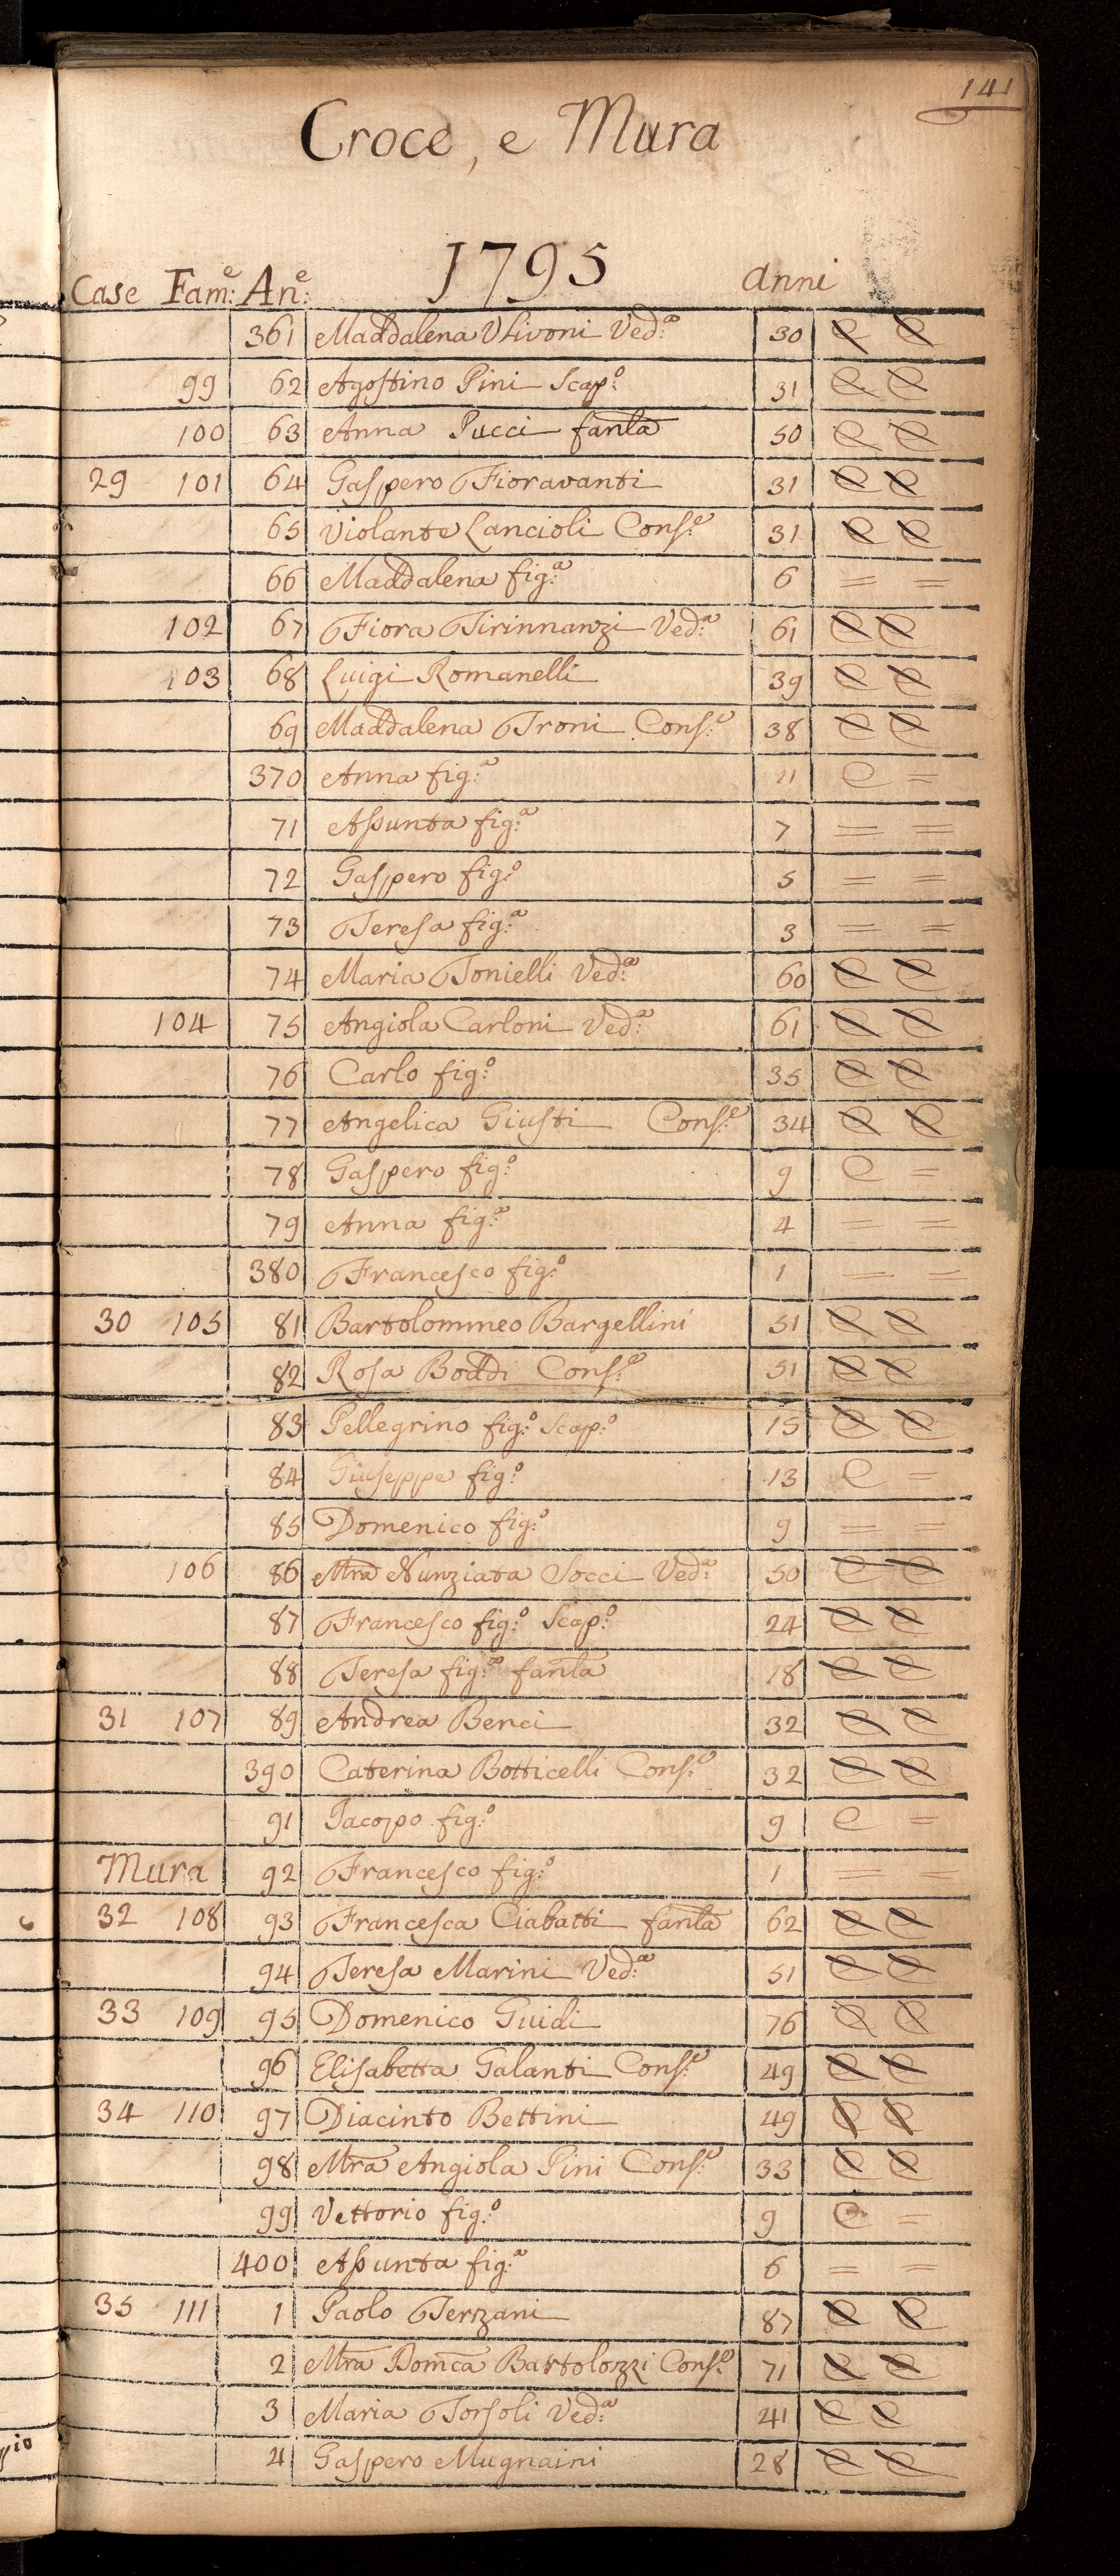 141
Croce, e Mura
1795
Case Fam:e An:e anni
361 Maddalena Ulivoni Ved:a 30 C C
99 62 Agostino Pini Scap:o 31 C C
100 63 Anna Pucci fanla 50 C C
29 101 64 Gaspero Fioravanti 31 C C
65 Violante Lancioli Cons:e 31 C C
66 Maddalena fig:a 6 = =
102 67 Fiora Tirinnanzi Ved:a 61 C C
103 68 Luigi Romanelli 39 C C
69 Maddalena Troni Cons:e 38 C C
370 Anna fig:a 11 C =
71 Assunta fig:a 7 = =
72 Gaspero fig:o 5 = =
73 Teresa fig:a 3 = =
74 Maria Tonielli Ved:a 60 C C
104 75 Angiola Carloni Ved:a 61 C C
76 Carlo fig:o 35 C C
77 Angelica Giusti Cons:e 34 C C
78 Gaspero fig:o 9 C =
79 Anna fig:a 4 = =
380 Francesco fig:o 1 = =
30 105 81 Bartolommeo Bargellini 51 C C
82 Rosa Boddi Cons:e 51 C C
83 Pellegrino fig:o Scap:o 15 C C
84 Giuseppe fig:o 13 C =
85 Domenico fig:o 9 = =
106 86 Mra Nunziata Socci Ved:a 50 C C
87 Francesco fig:o Scap:o 24 C C
88 Teresa fig:a fanla 18 C C
31 107 89 Andrea Benci 32 C C
390 Caterina Botticelli Cons:e 32 C C
91 Jacopo fig:o 9 C =
Mura 92 Francesco fig:o 1 = =
32 108 93 Francesca Ciabatti fanla 62 C C
94 Teresa Marini Ved:a 51 C C
33 109 95 Domenico Guidi 76 C C
96 Elisabetta Galanti Cons:e 49 C C
34 110 97 Diacinto Bettini 49 C C
98 Mra Angiola Pini Cons:e 33 C C
99 Vettorio fig:o 9 C =
400 Assunta fig:a 6 = =
35 111 1 Paolo Terzani 87 C C
2 Mra Domca Bartolozzi Cons:e 71 C C
3 Maria Torsoli Ved:a 41 C C
4 Gaspero Mugnaini 28 C C